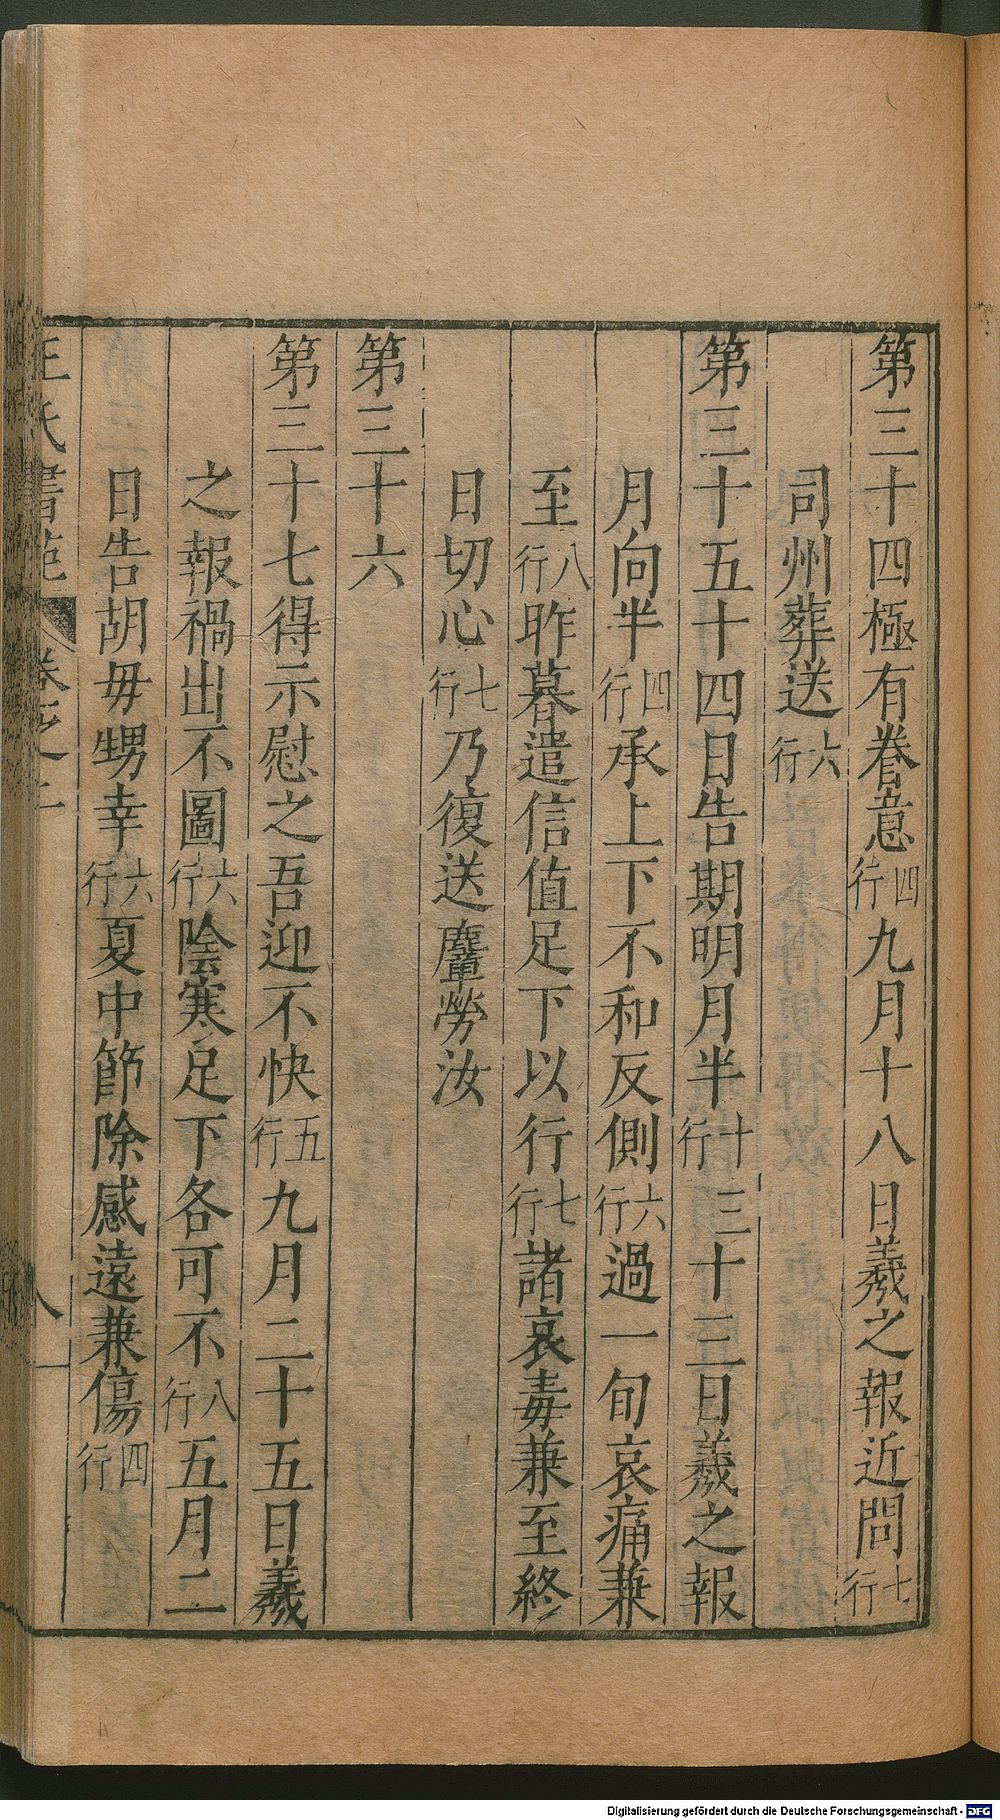 第三十四極有眷意四行九月十八日羲之報近問七行
司州葬送六行
第三十五十四日告期明月半十行三十三日羲之報
月向半四行承上下不和反側六行過一旬哀痛兼
至八行昨暮遣信值足下以行七行諸哀毒兼至終
日切心七行乃復送䴦勞汝
第三十六
第三十七得示慰之吾迎不快五行九月二十五日羲
之報禍出不圖六行陰寒足下各可不八行五月二
日告胡毋甥幸六行夏中節除感遠兼傷四行
王氏書苑 卷之二 八
Digitalisierung gefördert durch die Deutsche Forschungsgemeinschaft - DFG